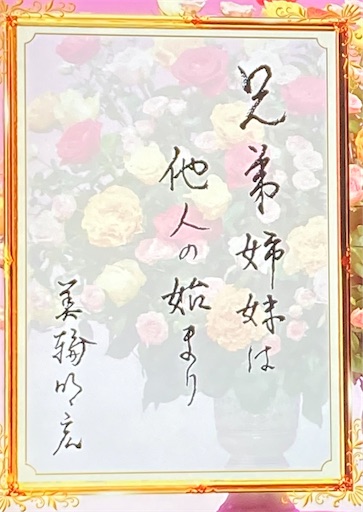 兄弟姉妹は
他人の始まり
美輪明宏